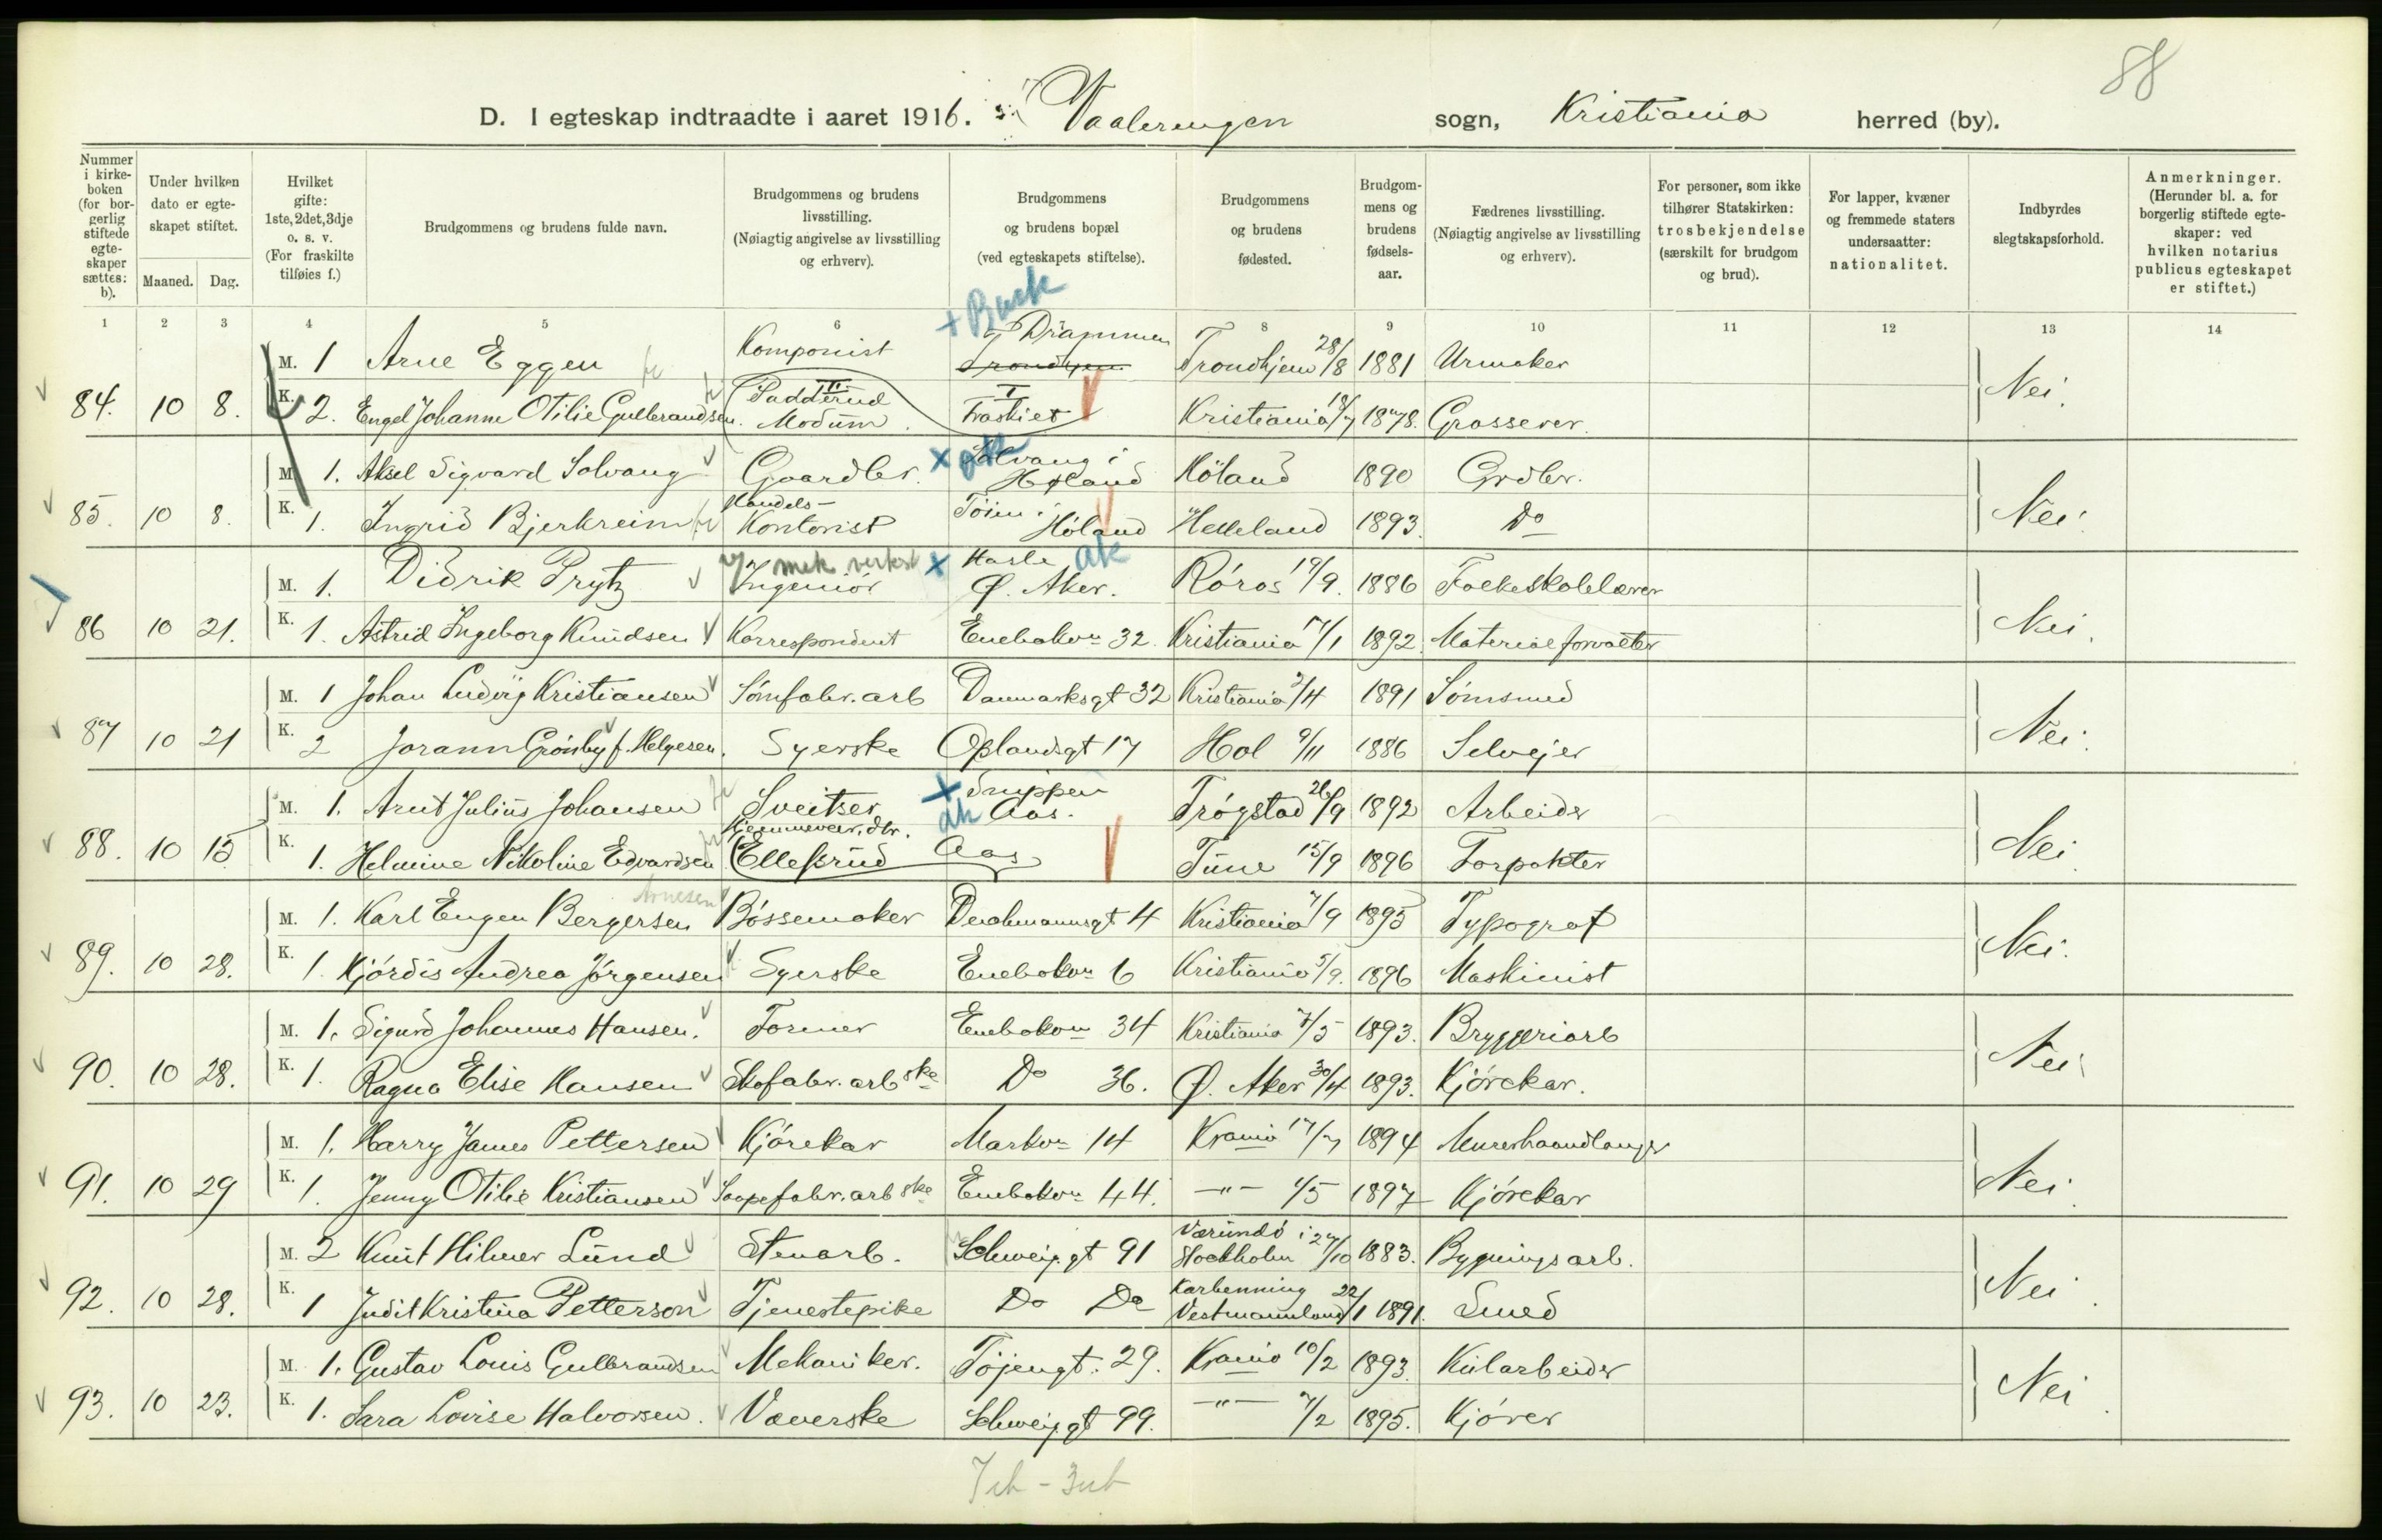 88
D. I egteskap indtraadte i aaret 1916. i Vaalerengen sogn, Kristiania herred (by).
Nummer i kirke-boken (for bor-gerlig stiftede egte-skaper sættes: b).
Under hvilken dato er egte-skapet stiftet.
Maaned. Dag.
Hvilket gifte: 1ste, 2det, 3dje o. s. v. (For fraskilte tilføies f.)
Brudgommens og brudens fulde navn.
Brudgommens og brudens livsstilling. (Nøiagtig angivelse av livsstilling og erhverv).
Brudgommens og brudens bopæl (ved egteskapets stiftelse).
Brudgommens og brudens fødested.
Brudgom-mens og brudens fødsels-aar.
Fædrenes livsstilling. (Nøiagtig angivelse av livsstilling og erhverv).
For personer, som ikke tilhører Statskirken: trosbekjendelse (særskilt for brudgom og brud).
For lapper, kvæner og fremmede staters undersaatter: nationalitet.
Indbyrdes slegtskapsforhold.
Anmerkninger. (Herunder bl. a. for borgerlig stiftede egte-skaper: ved hvilken notarius publicus egteskapet er stiftet.)
1 2 3 4 5 6 8 9 10 11 12 13 14
+ Busk
M. 1 Arne Eggen Komponist Drammen Trondhjem Trondhjem 28/8 1881 Urmaker
84. 10 8. K. 2. Engel Johanne Otilie Gulbrandsen. Padderud Modum Fraskilt Kristiania 18/7 1878. Grosserer. Nei.
M. 1. Aksel Sigvard Solvang Gaardbr. x ak Solvang i Høland Höland 1890 Grdbr.
85. 10 8. K. 1. Ingrid Bjerkreim Handels- Kontorist Töien i Höland Helleland 1893. Do Nei.
M. 1. Didrik Prytz Ingeniör v/ mek. verkst x Hasle ak Ø. Aker. Röros 19/9. 1886 Folkeskolelærer
86 10 21. K. 1. Astrid Ingeborg Knudsen Korrespondent Enebakvn 32. Kristiania 17/1 1892. Materialforvalter Nei.
M. 1 Johan Ludvig Kristiansen Sömfabr. arb Danmarksgt 32 Kristiania 2/4 1891 Sömsmed
87 10 21 K. 2 Jorann Grönby f. Helgesen. Syerske Oplandsgt 17 Hol 9/11 1886 Selvejer Nei.
M. 1. Arnt Julius Johansen Sveitser x ak Aas. Trögstad 26/9 1892 Arbeider
88. 10 15 K. 1. Helmine Nikoline Edvardsen Hjemmevær. dtr. Ellefsrud Aas Tune 15/9 1896 Forpakter Nei
Arnesen
M. 1. Karl Eugen Bergersen Bössemaker Deichmannsgt 4 Kristiania 7/9 1895 Typograf
89. 10 28. K. 1. Hjördis Andrea Jörgensen Syerske Enebakvn 6 Kristiania 5/9. 1896 Maskinist Nei.
M. 1. Sigurd Johannes Hansen. Former Enebakvn 34 Kristiania 7/5 1893. Bryggeriarb
90. 10 28. K. 1. Ragna Elise Hansen Skofabr. arbske Do 36. Ø. Aker 30/4 1893. Kjörekar. Nei
M. 1. Harry James Pettersen Kjörekar Markvn 14 Krania 17/7 1894 Murerhaandlanger
91. 10 29 K. 1. Jenny Otilie Kristiansen Saapefabr. arbske Enebakvn 44. -"- 1/5 1897 Kjörekar Nei.
M. 2 Knut Hilmer Lund Stenarb. Schweig. gt 91 Værundö i Stockholm 27/10 1883. Bygningsarb.
92. 10 28. K. 1 Judit Kristina Petterson Tjenestepike Do Do Karbenning Vestmannland 22/1 1891. Smed Nei
M. 1. Gustav Louis Gulbrandsen Mekaniker. Töjengt. 29. Krania 10/2 1893. Kularbeider
93. 10 23. K. 1. Sara Lovise Halvorsen. Væverske Schweig. gt 99. -"- 7/2 1895. Kjörer Nei.